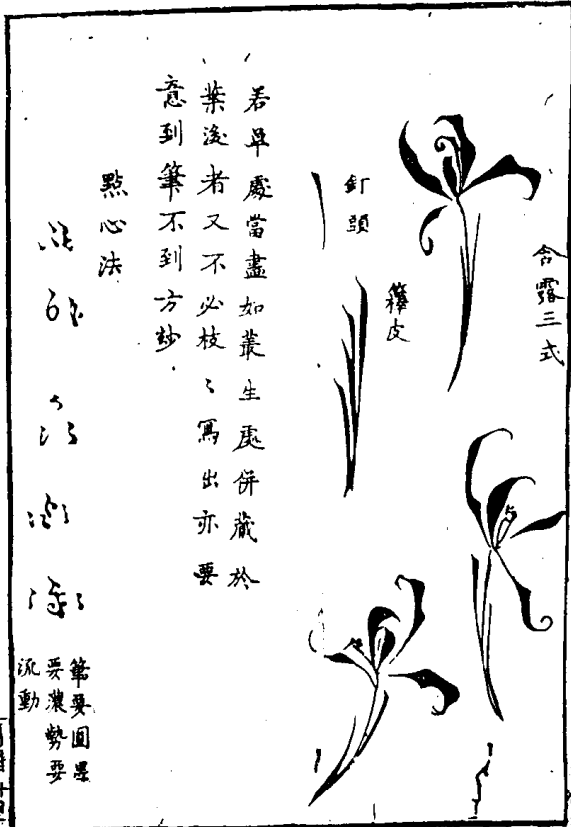 含露三式
釘頭
籜皮
若單處當盡如叢生處併藏於
葉後者又不必枝〻寫出亦要
意到筆不到方妙
點心法
筆要圓墨
要濃勢要
流動